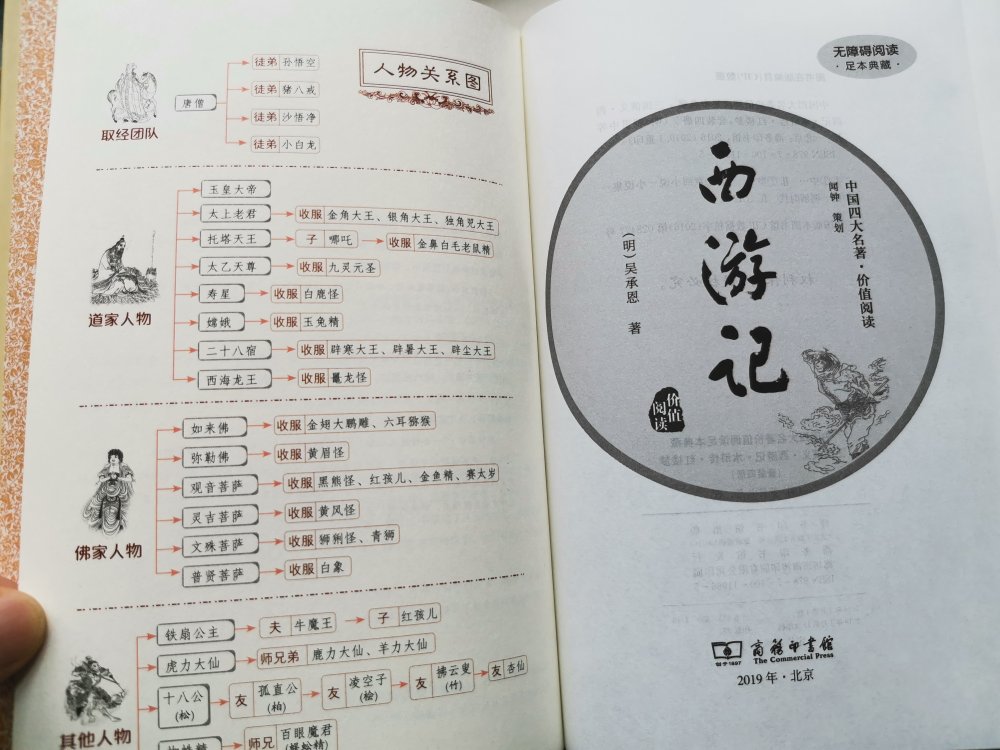 人物关系图
取经团队
唐僧
徒弟 孙悟空
徒弟 猪八戒
徒弟 沙悟净
徒弟 小白龙
道家人物
玉皇大帝
太上老君 收服 金角大王、银角大王、独角兕大王
托塔天王 子 哪吒 收服 金鼻白毛老鼠精
太乙天尊 收服 九灵元圣
寿星 收服 白鹿怪
嫦娥 收服 玉兔精
二十八宿 收服 辟寒大王、辟暑大王、辟尘大王
西海龙王 收服 鼍龙怪
佛家人物
如来佛 收服 金翅大鹏雕、六耳猕猴
弥勒佛 收服 黄眉怪
观音菩萨 收服 黑熊怪、红孩儿、金鱼精、赛太岁
灵吉菩萨 收服 黄风怪
文殊菩萨 收服 狮猁怪、青狮
普贤菩萨 收服 白象
其他人物
铁扇公主 夫 牛魔王 子 红孩儿
虎力大仙 师兄弟 鹿力大仙、羊力大仙
十八公 友 孤直公 友 凌空子 友 拂云叟 友 杏仙
(松) (柏) (桧) (竹)
蜘蛛精 师兄 百眼魔君
(蜈蚣精)
无障碍阅读
·足本典藏·
中国四大名著·价值阅读
闻钟 策划
西游记
(明)吴承恩 著
价值阅读
创于1897
商务印书馆
The Commercial Press
2019年·北京